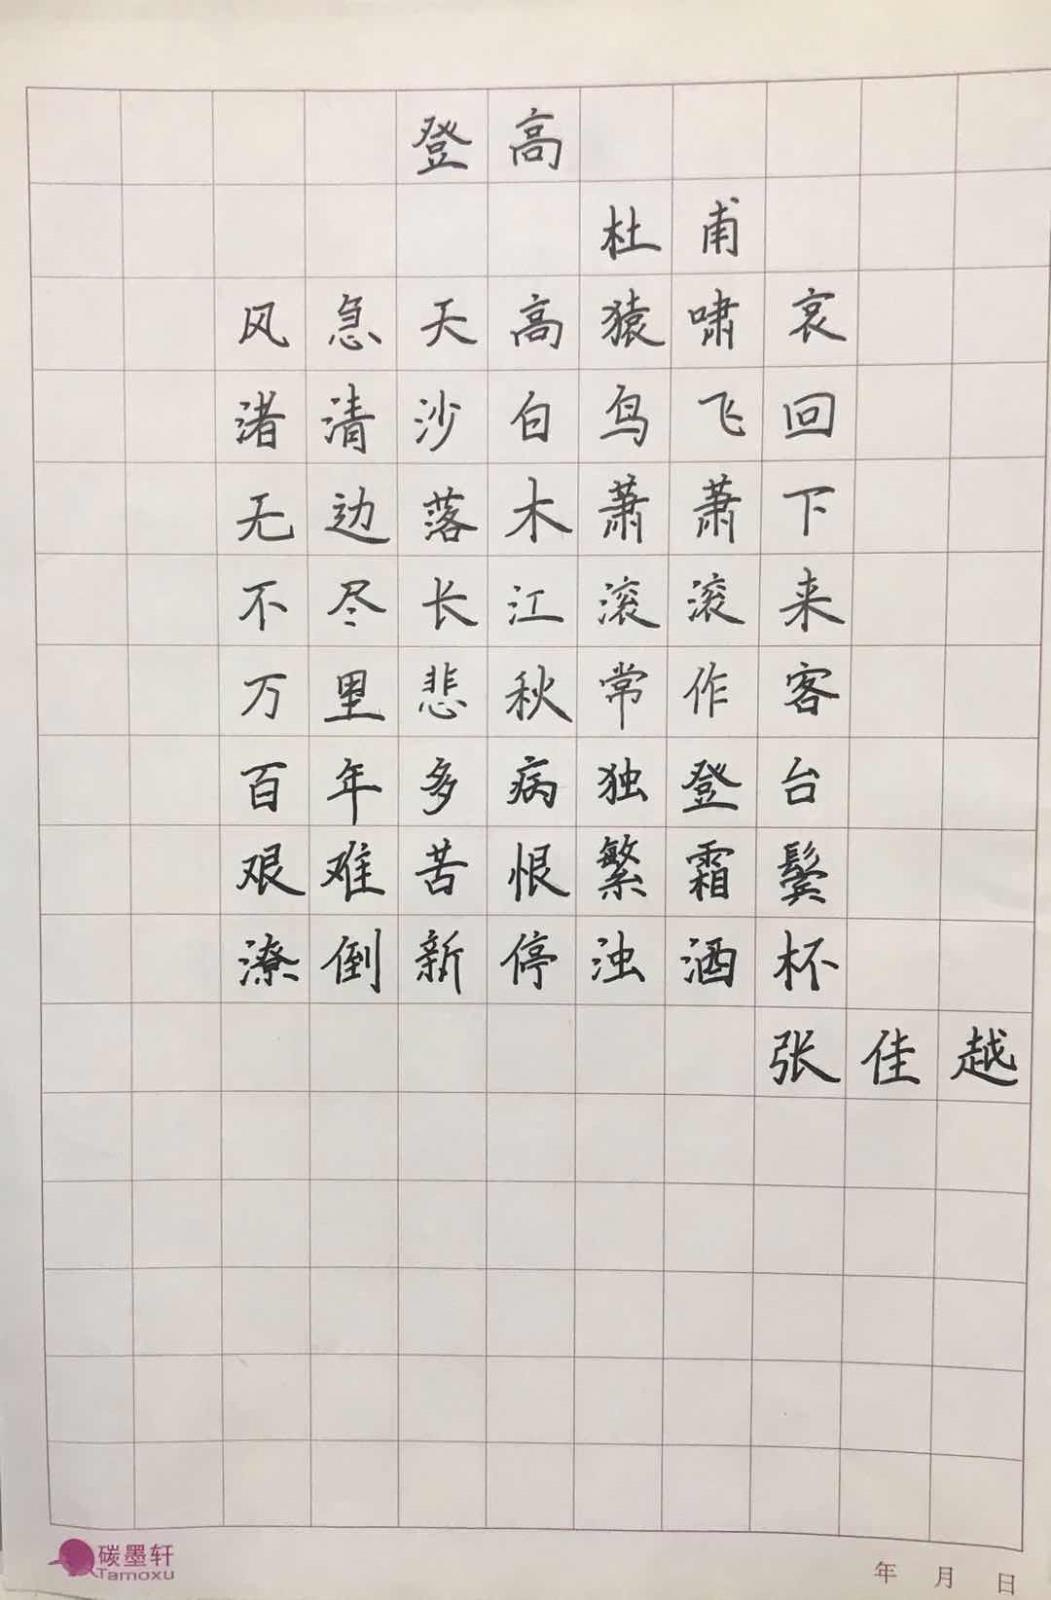 登高
杜甫
风急天高猿啸哀
渚清沙白鸟飞回
无边落木萧萧下
不尽长江滚滚来
万里悲秋常作客
百年多病独登台
艰难苦恨繁霜鬓
潦倒新停浊酒杯
张佳越
碳墨轩
Tamoxu
年 月 日